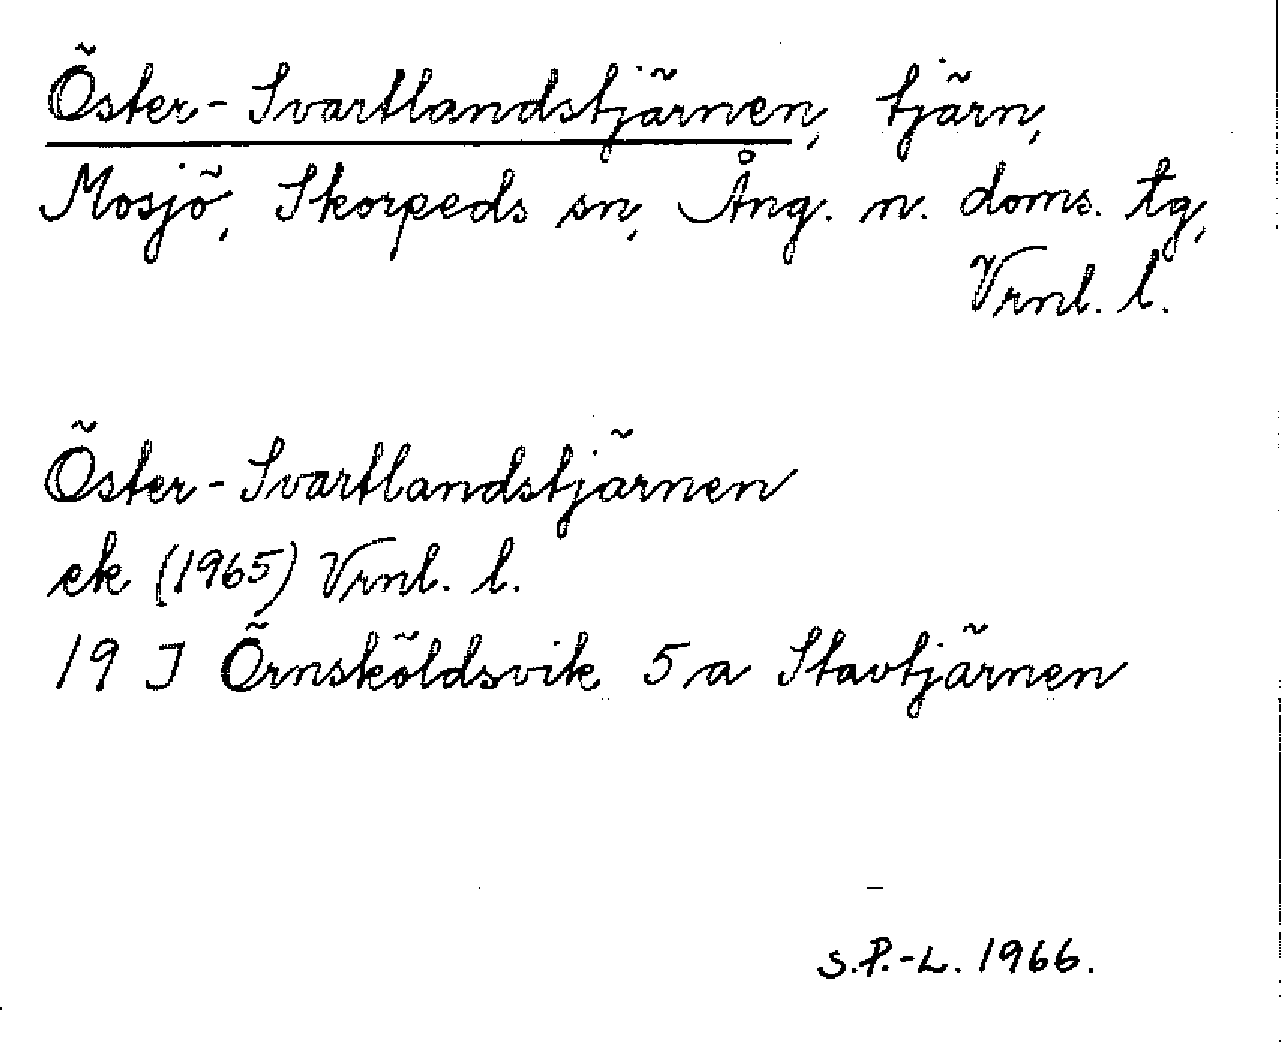 Öster-Svartlandstjärnen, tjärn,
Mosjö, Skorpeds sn, Ång. n. doms. tg,
Vrnl. l.
Öster-Svartlandstjärnen
ek (1965) Vrnl. l.
19 J Örnsköldsvik 5 a Stavtjärnen
S.P.-L. 1966.